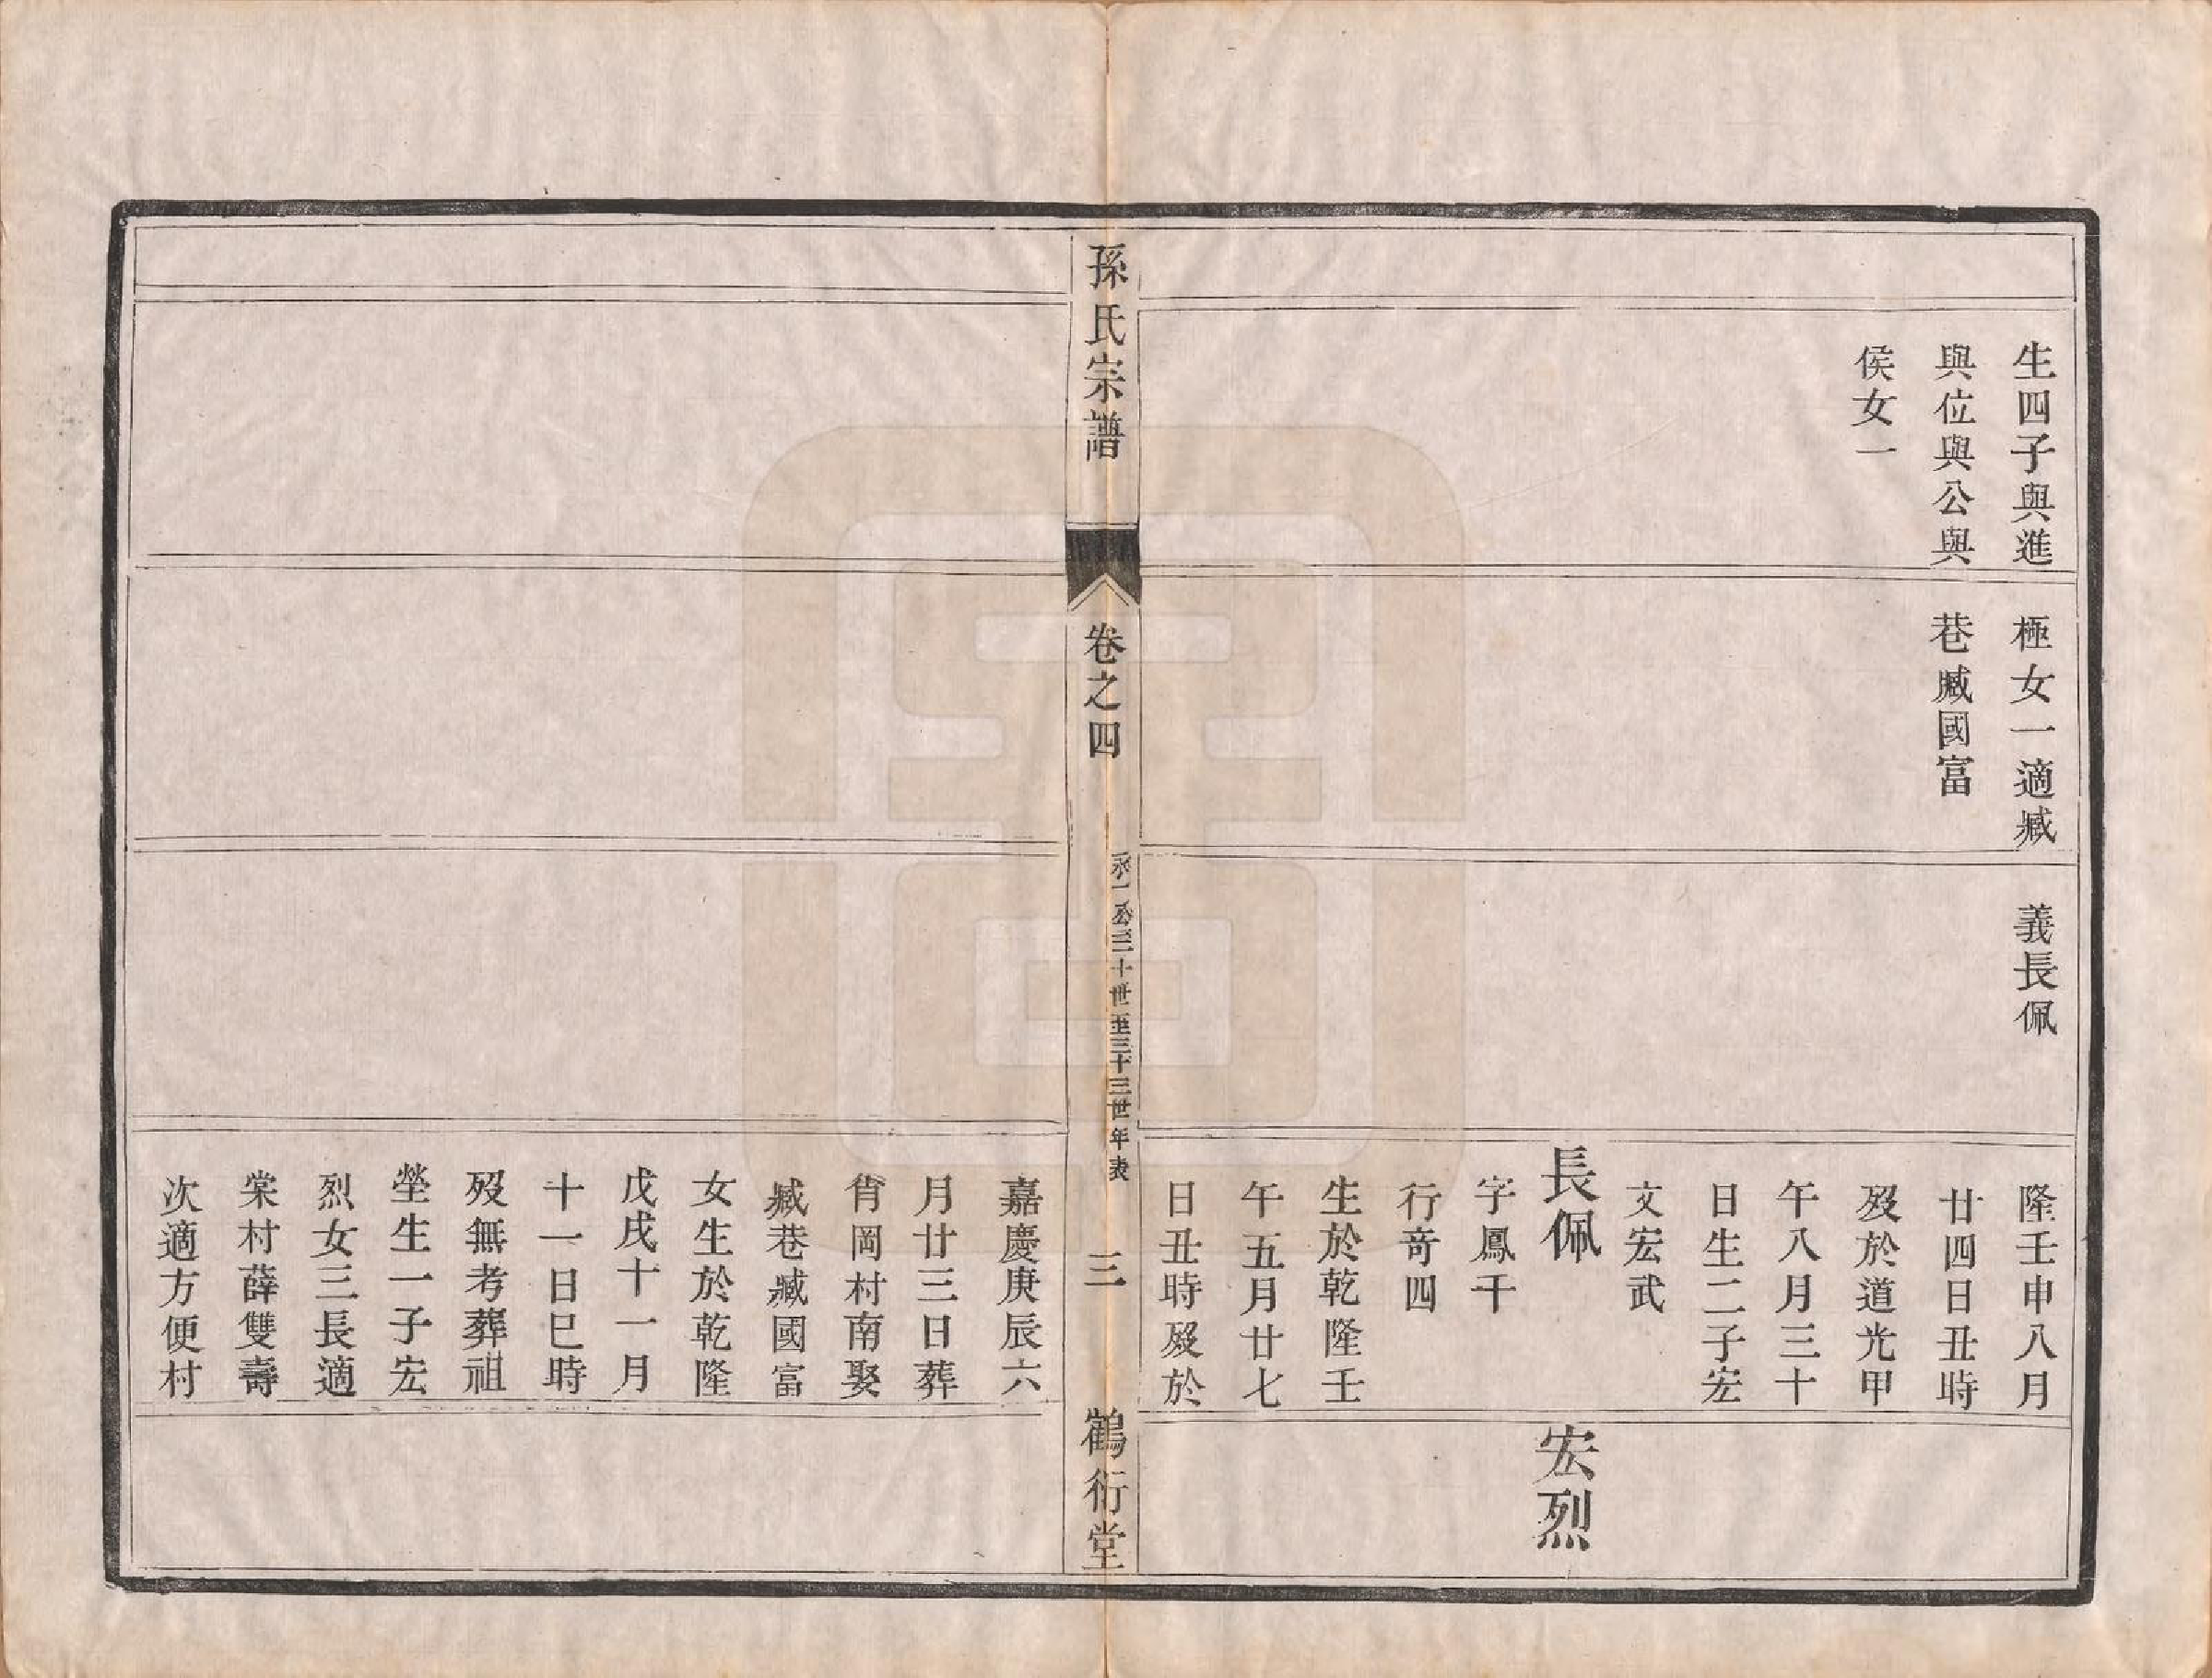 生四子與進
與位與公與
侯女一
極女一適臧
巷臧國富
義長佩
隆壬申八月
廿四日丑時
歿於道光甲
午八月三十
日生二子宏
文宏武
長佩
字鳳千
行奇四
生於乾隆壬
午五月廿七
日丑時歿於
宏烈
孫氏宗譜
卷之四
永一公三十世至三十三世年表
三
鶴衍堂
嘉慶庚辰六
月廿三日葬
岡村南娶
臧巷臧國富
女生於乾隆
戊戌十一月
十一日巳時
歿無考葬祖
塋生一子宏
烈女三長適
棠村薛雙壽
次適方便村